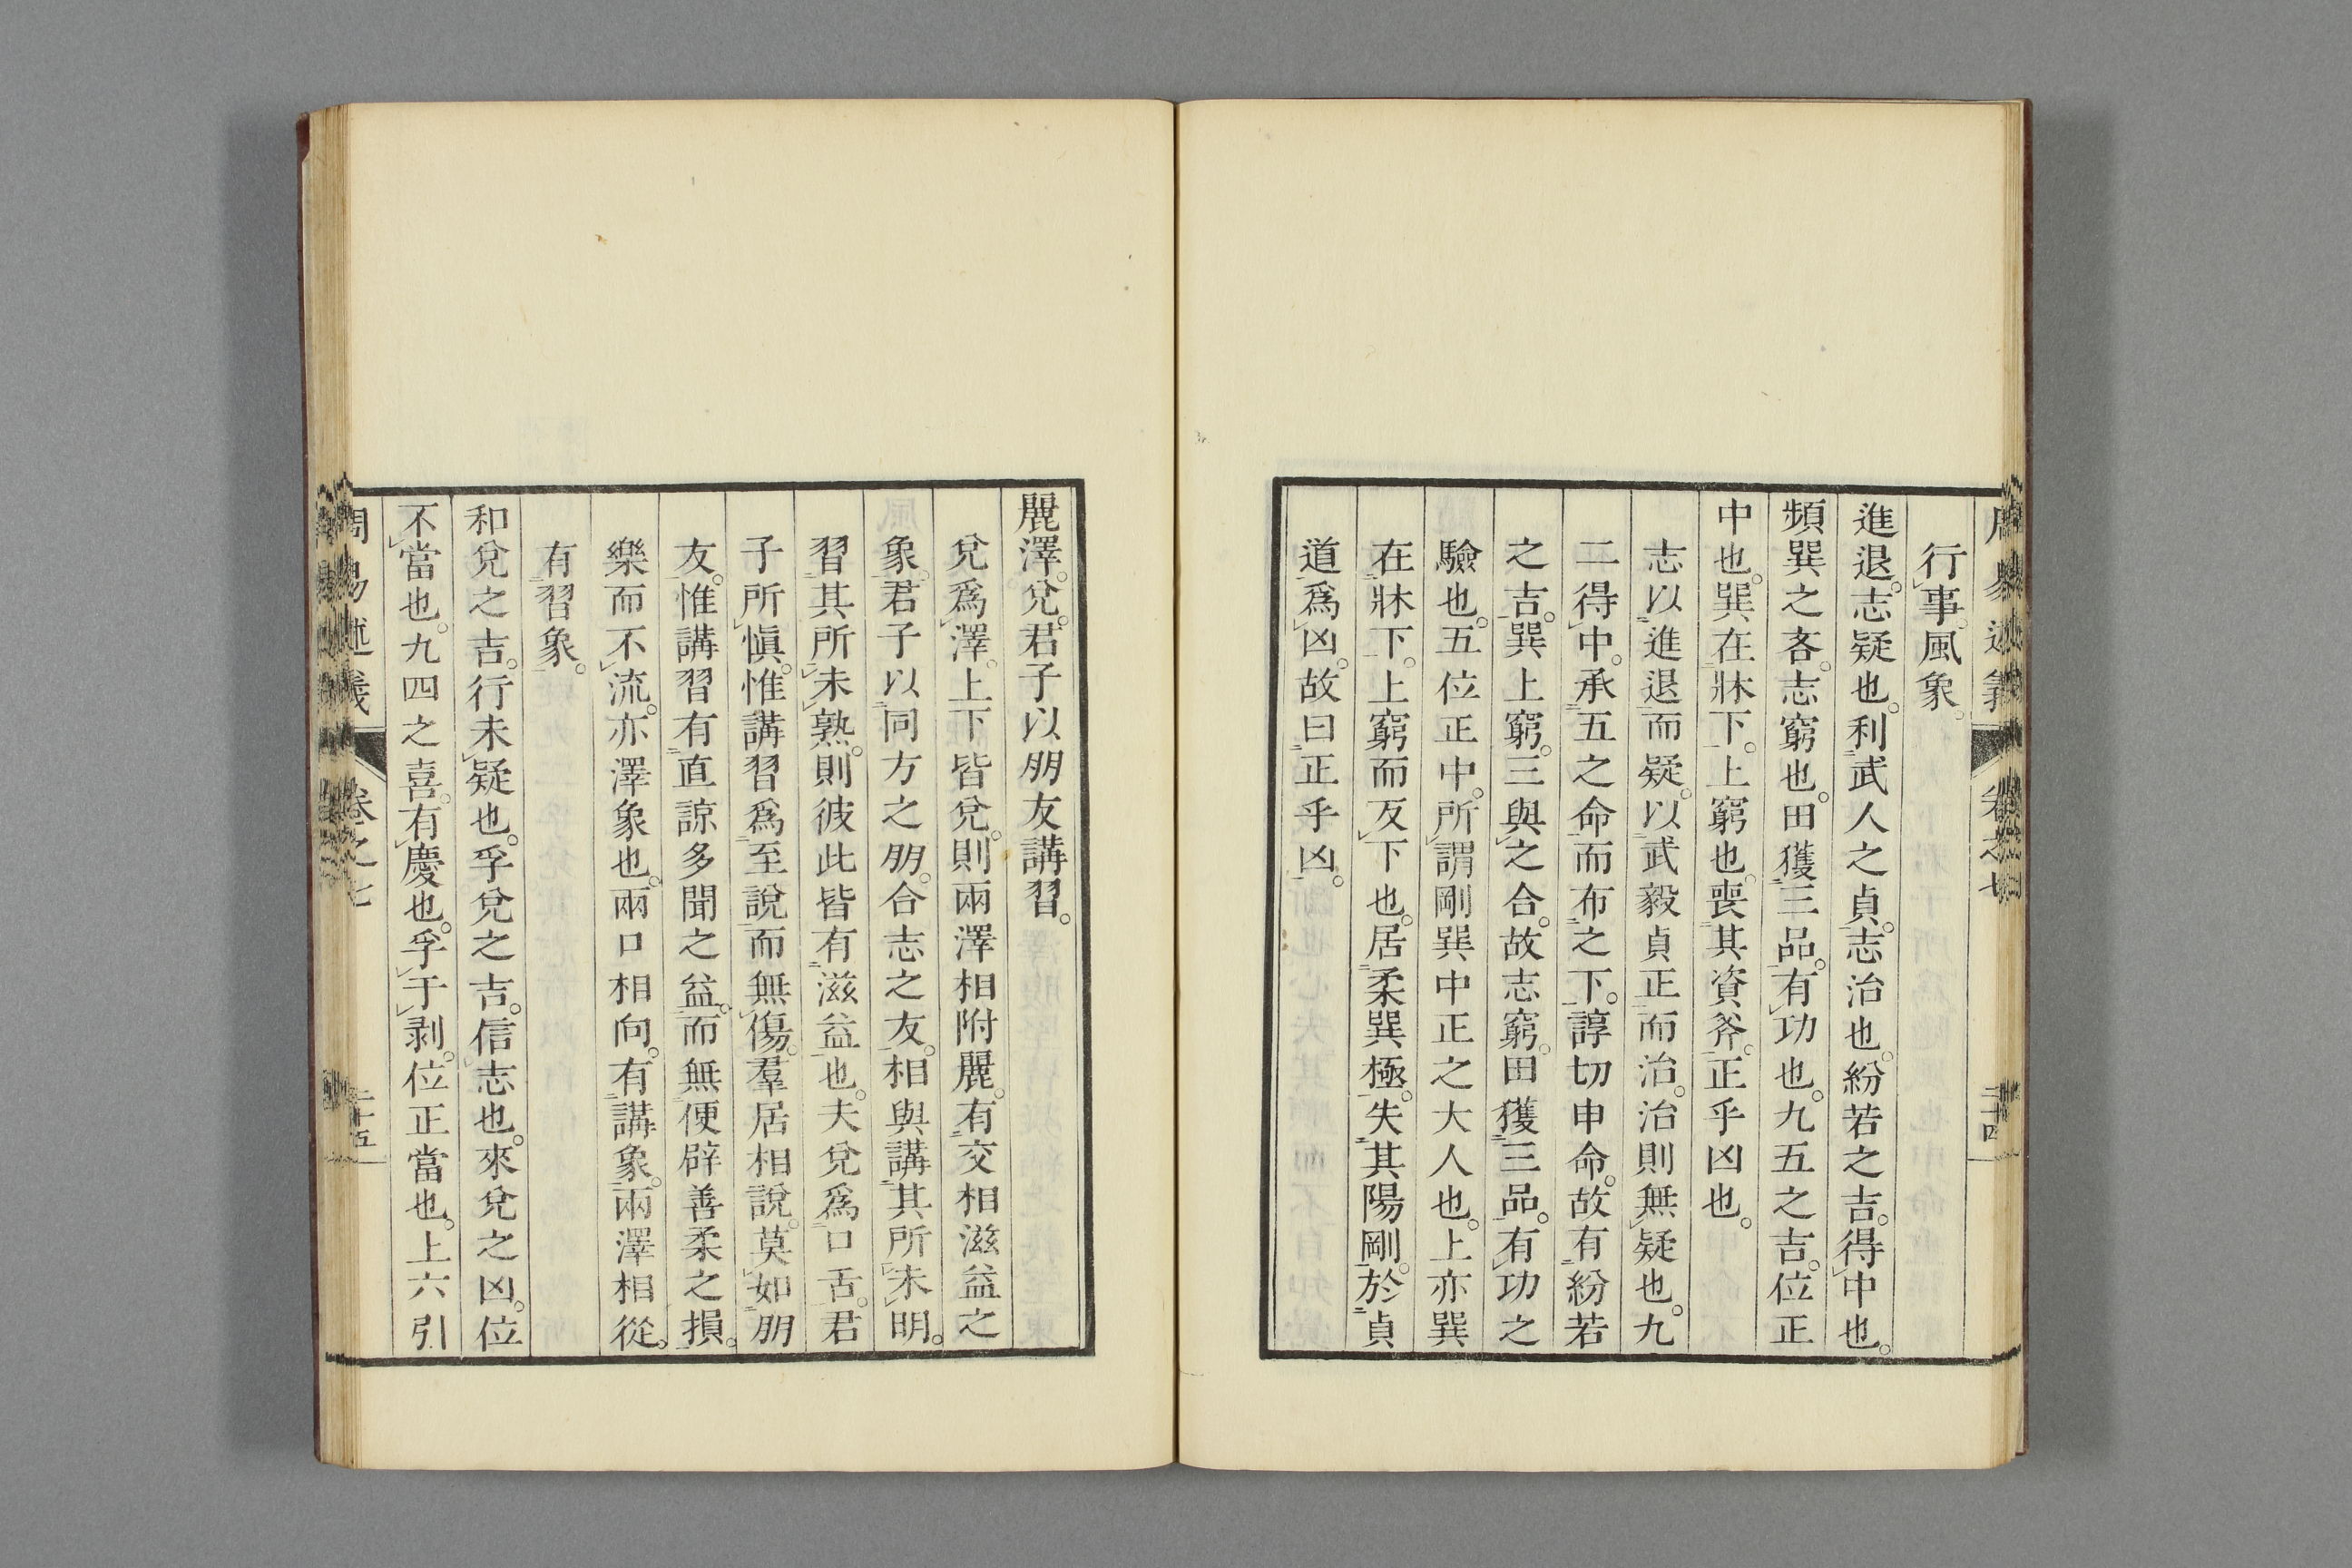 周易述義 卷之七 二十四
行事。風象。
進退。志疑也。利武人之貞。志治也。紛若之吉。得中也。
頻巽之吝。志窮也。田獲三品。有功也。九五之吉。位正
中也。巽在牀下。上窮也。喪其資斧。正乎凶也。
志以進退而疑。以武毅貞正而治。治則無疑也。九
二得中。承五之命而布之下。諄切申命。故有紛若
之吉。巽上窮。三與之合。故志窮。田獲三品。有功之
驗也。五位正中。所謂剛巽中正之大人也。上亦巽
在牀下。上窮而反下也。居柔巽極。失其陽剛。於貞
道爲凶。故曰正乎凶。
麗澤。兌。君子以朋友講習。
兌爲澤。上下皆兌。則兩澤相附麗。有交相滋益之
象。君子以同方之朋。合志之友。相與講其所未明。
習其所未熟。則彼此皆有滋益也。夫兌爲口舌。君
子所愼。惟講習爲至說而無傷。羣居相說。莫如朋
友。惟講習有直諒多聞之益。而無便辟善柔之損。
樂而不流。亦澤象也。兩口相向。有講象。兩澤相從。
有習象。
和兌之吉。行未疑也。孚兌之吉。信志也。來兌之凶。位
不當也。九四之喜。有慶也。孚于剥。位正當也。上六引
周易述義 卷之七 二十五